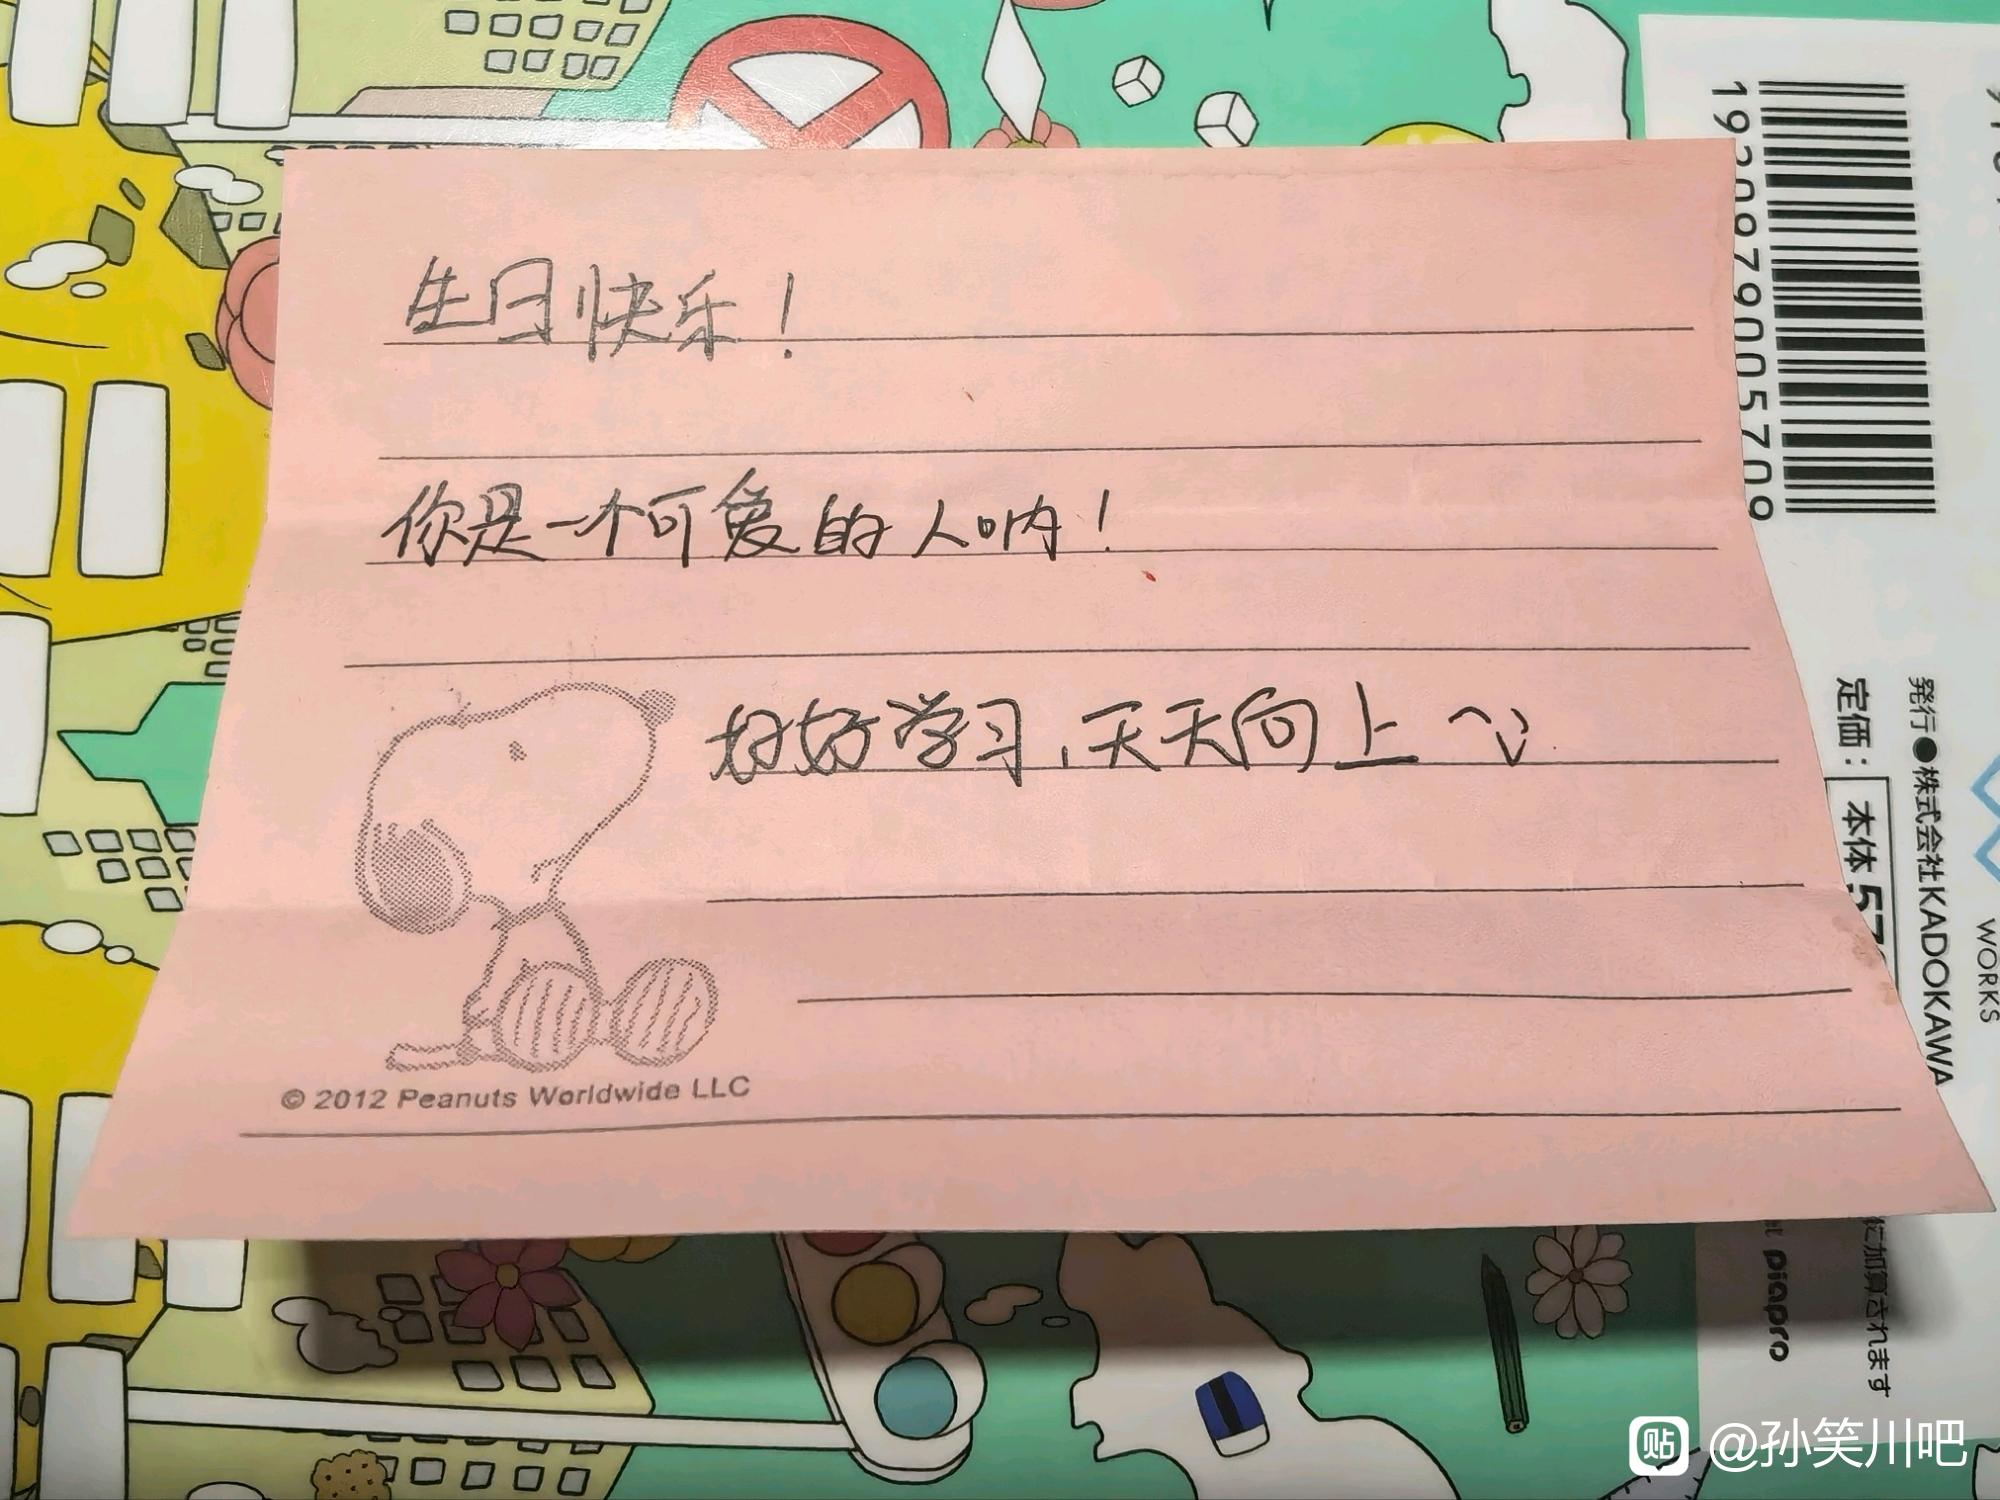 生日快乐！
你是一个可爱的人呐！
好好学习、天天向上
© 2012 Peanuts Worldwide LLC
1920979005709
発行●株式会社KADOKAWA
定価：本体57
WORKS
に加算されます
piapro
贴 @孙笑川吧